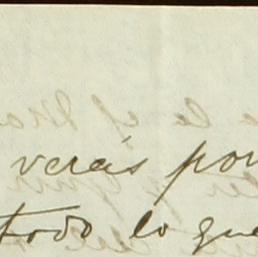 verás por
todo lo que